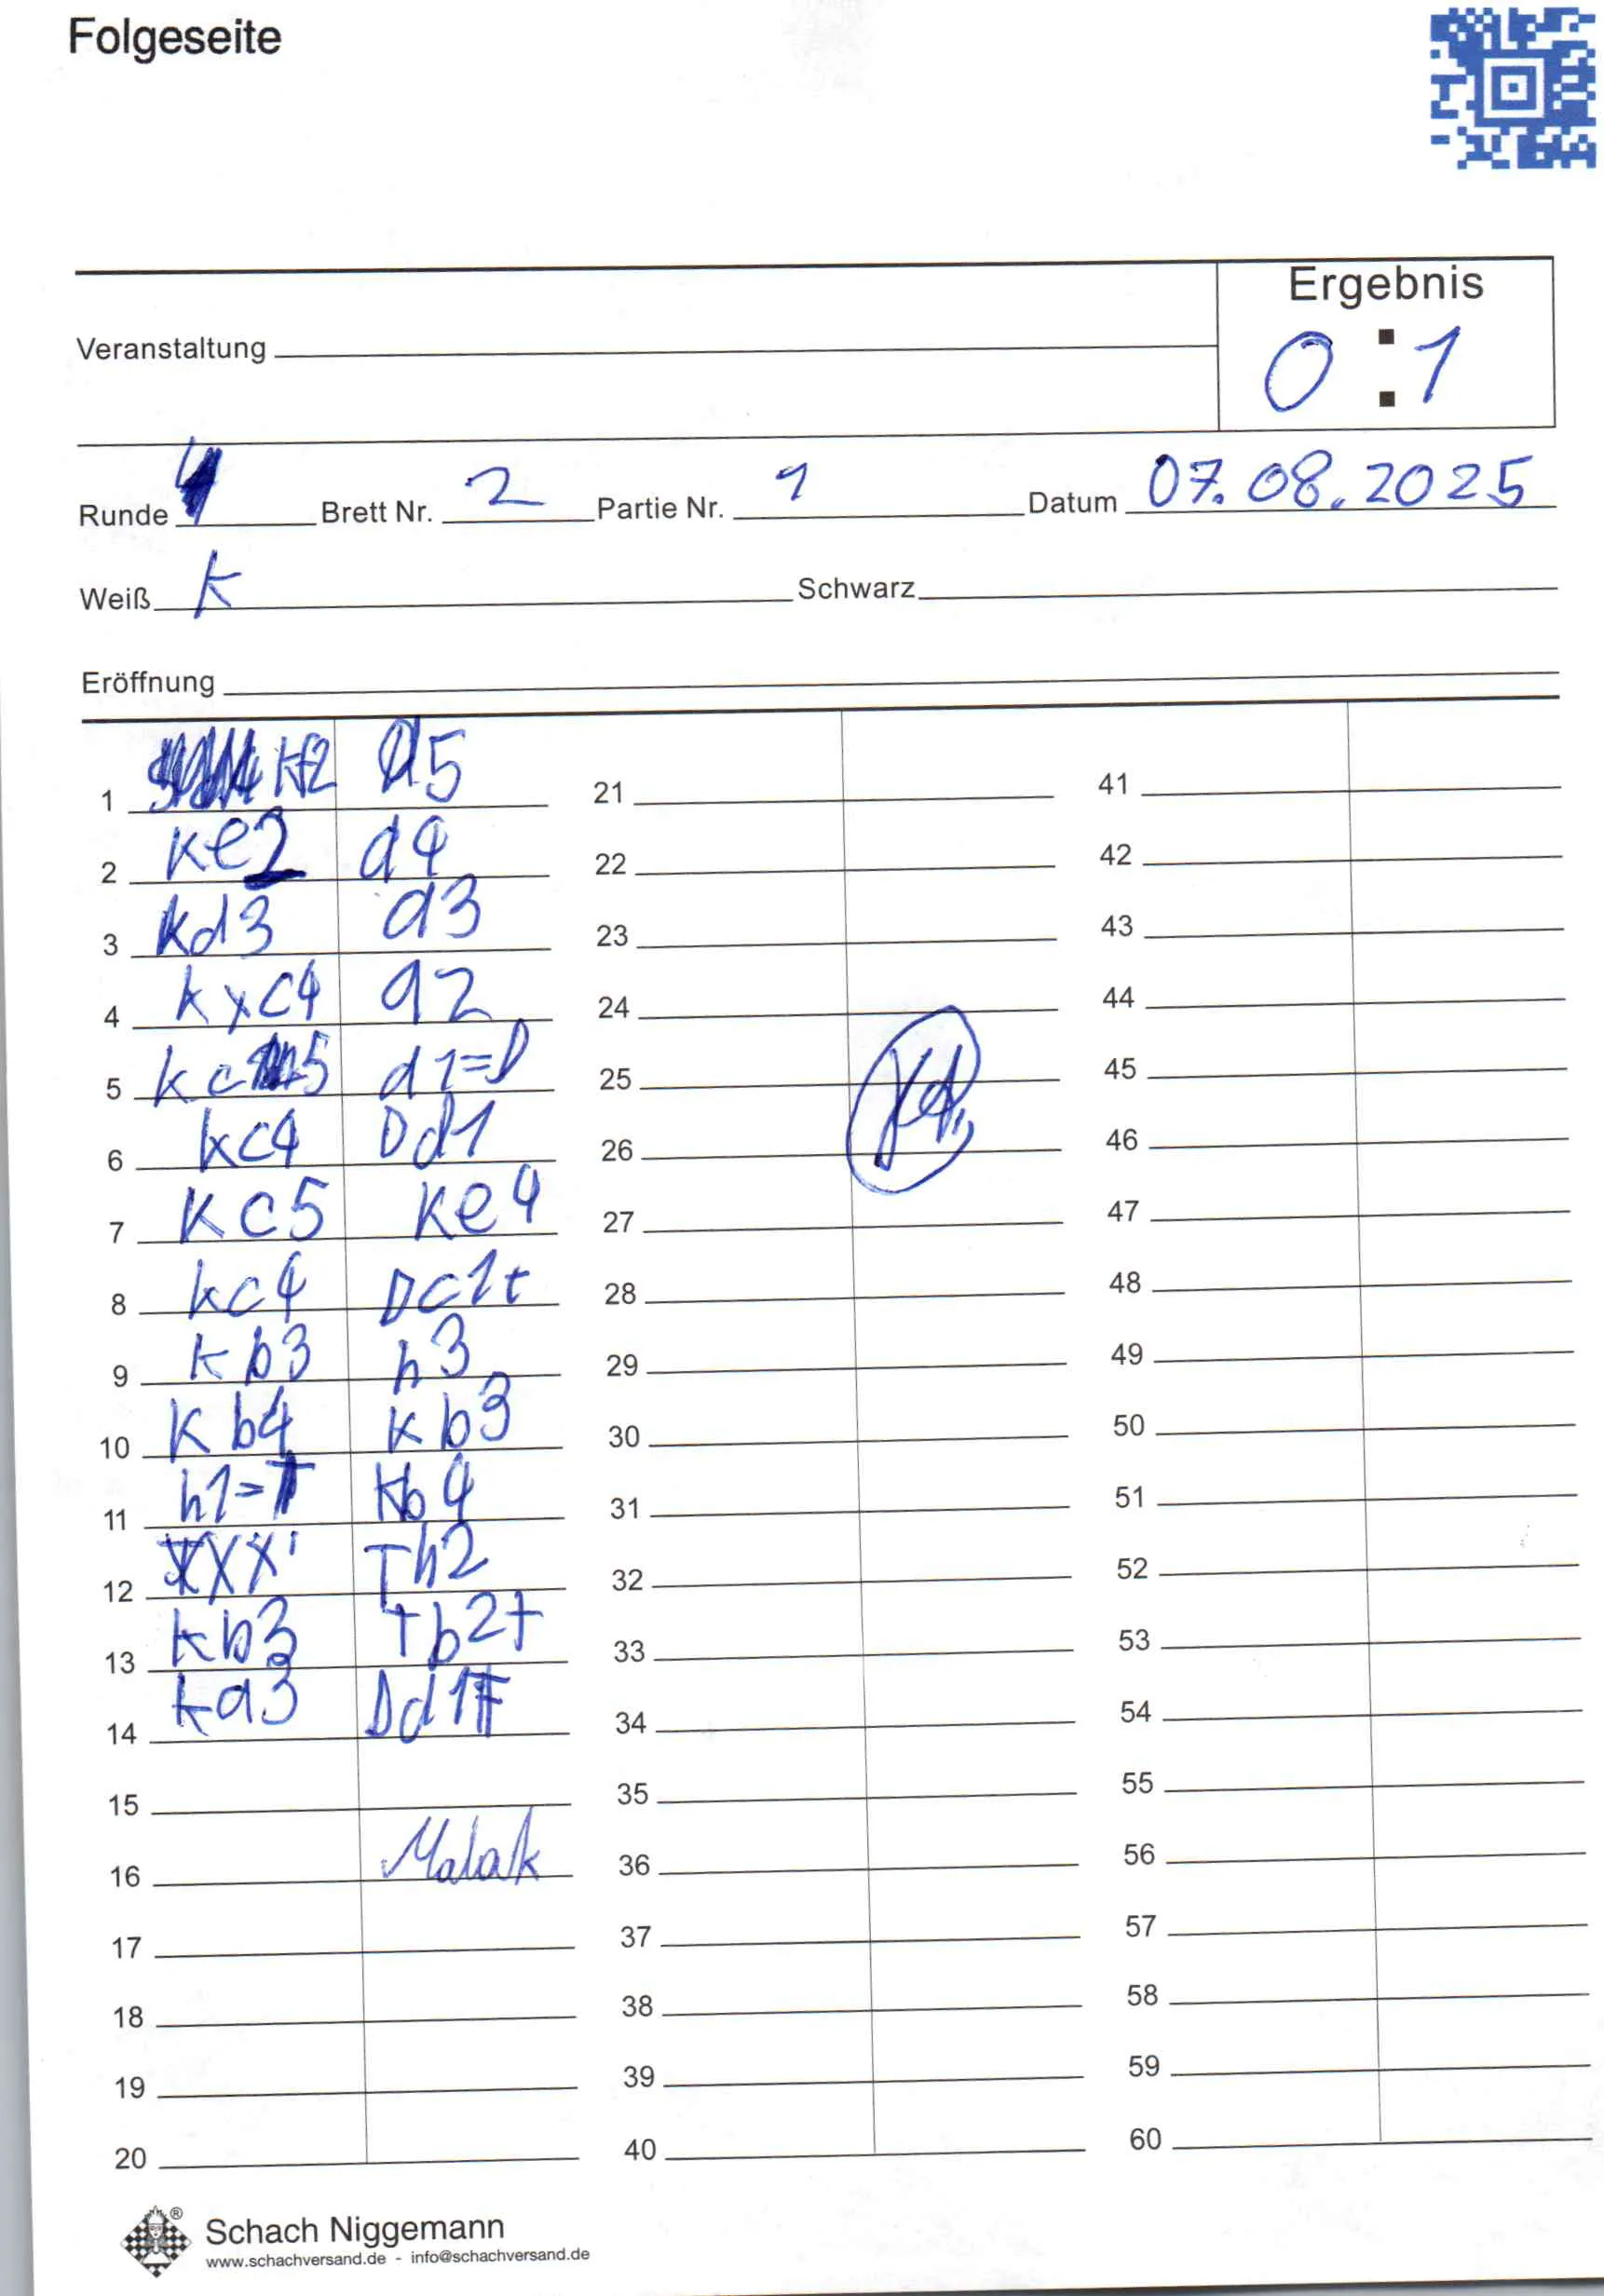 Folgeseite
Ergebnis
0 : 1
Veranstaltung
Runde 4 Brett Nr. 2 Partie Nr. 1 Datum 07.08.2025
Weiß K Schwarz
Eröffnung
1 Kf2 d5 21 41
2 Ke2 d4 22 42
3 Kd3 d3 23 43
4 Kxc4 d2 24 44
5 Kc5 d1=D 25 45
6 Kc4 Dd1 26 46
7 Kc5 Ke4 27 47
8 Kc4 Dc1+ 28 48
9 Kb3 h3 29 49
10 Kb4 Kb3 30 50
11 h1=T Kb4 31 51
12 XXX Th2 32 52
13 Kb3 Tb2+ 33 53
14 Ka3 Dd1# 34 54
15 35 55
16 Malak 36 56
17 37 57
18 38 58
19 39 59
20 40 60
Schach Niggemann
www.schachversand.de - info@schachversand.de